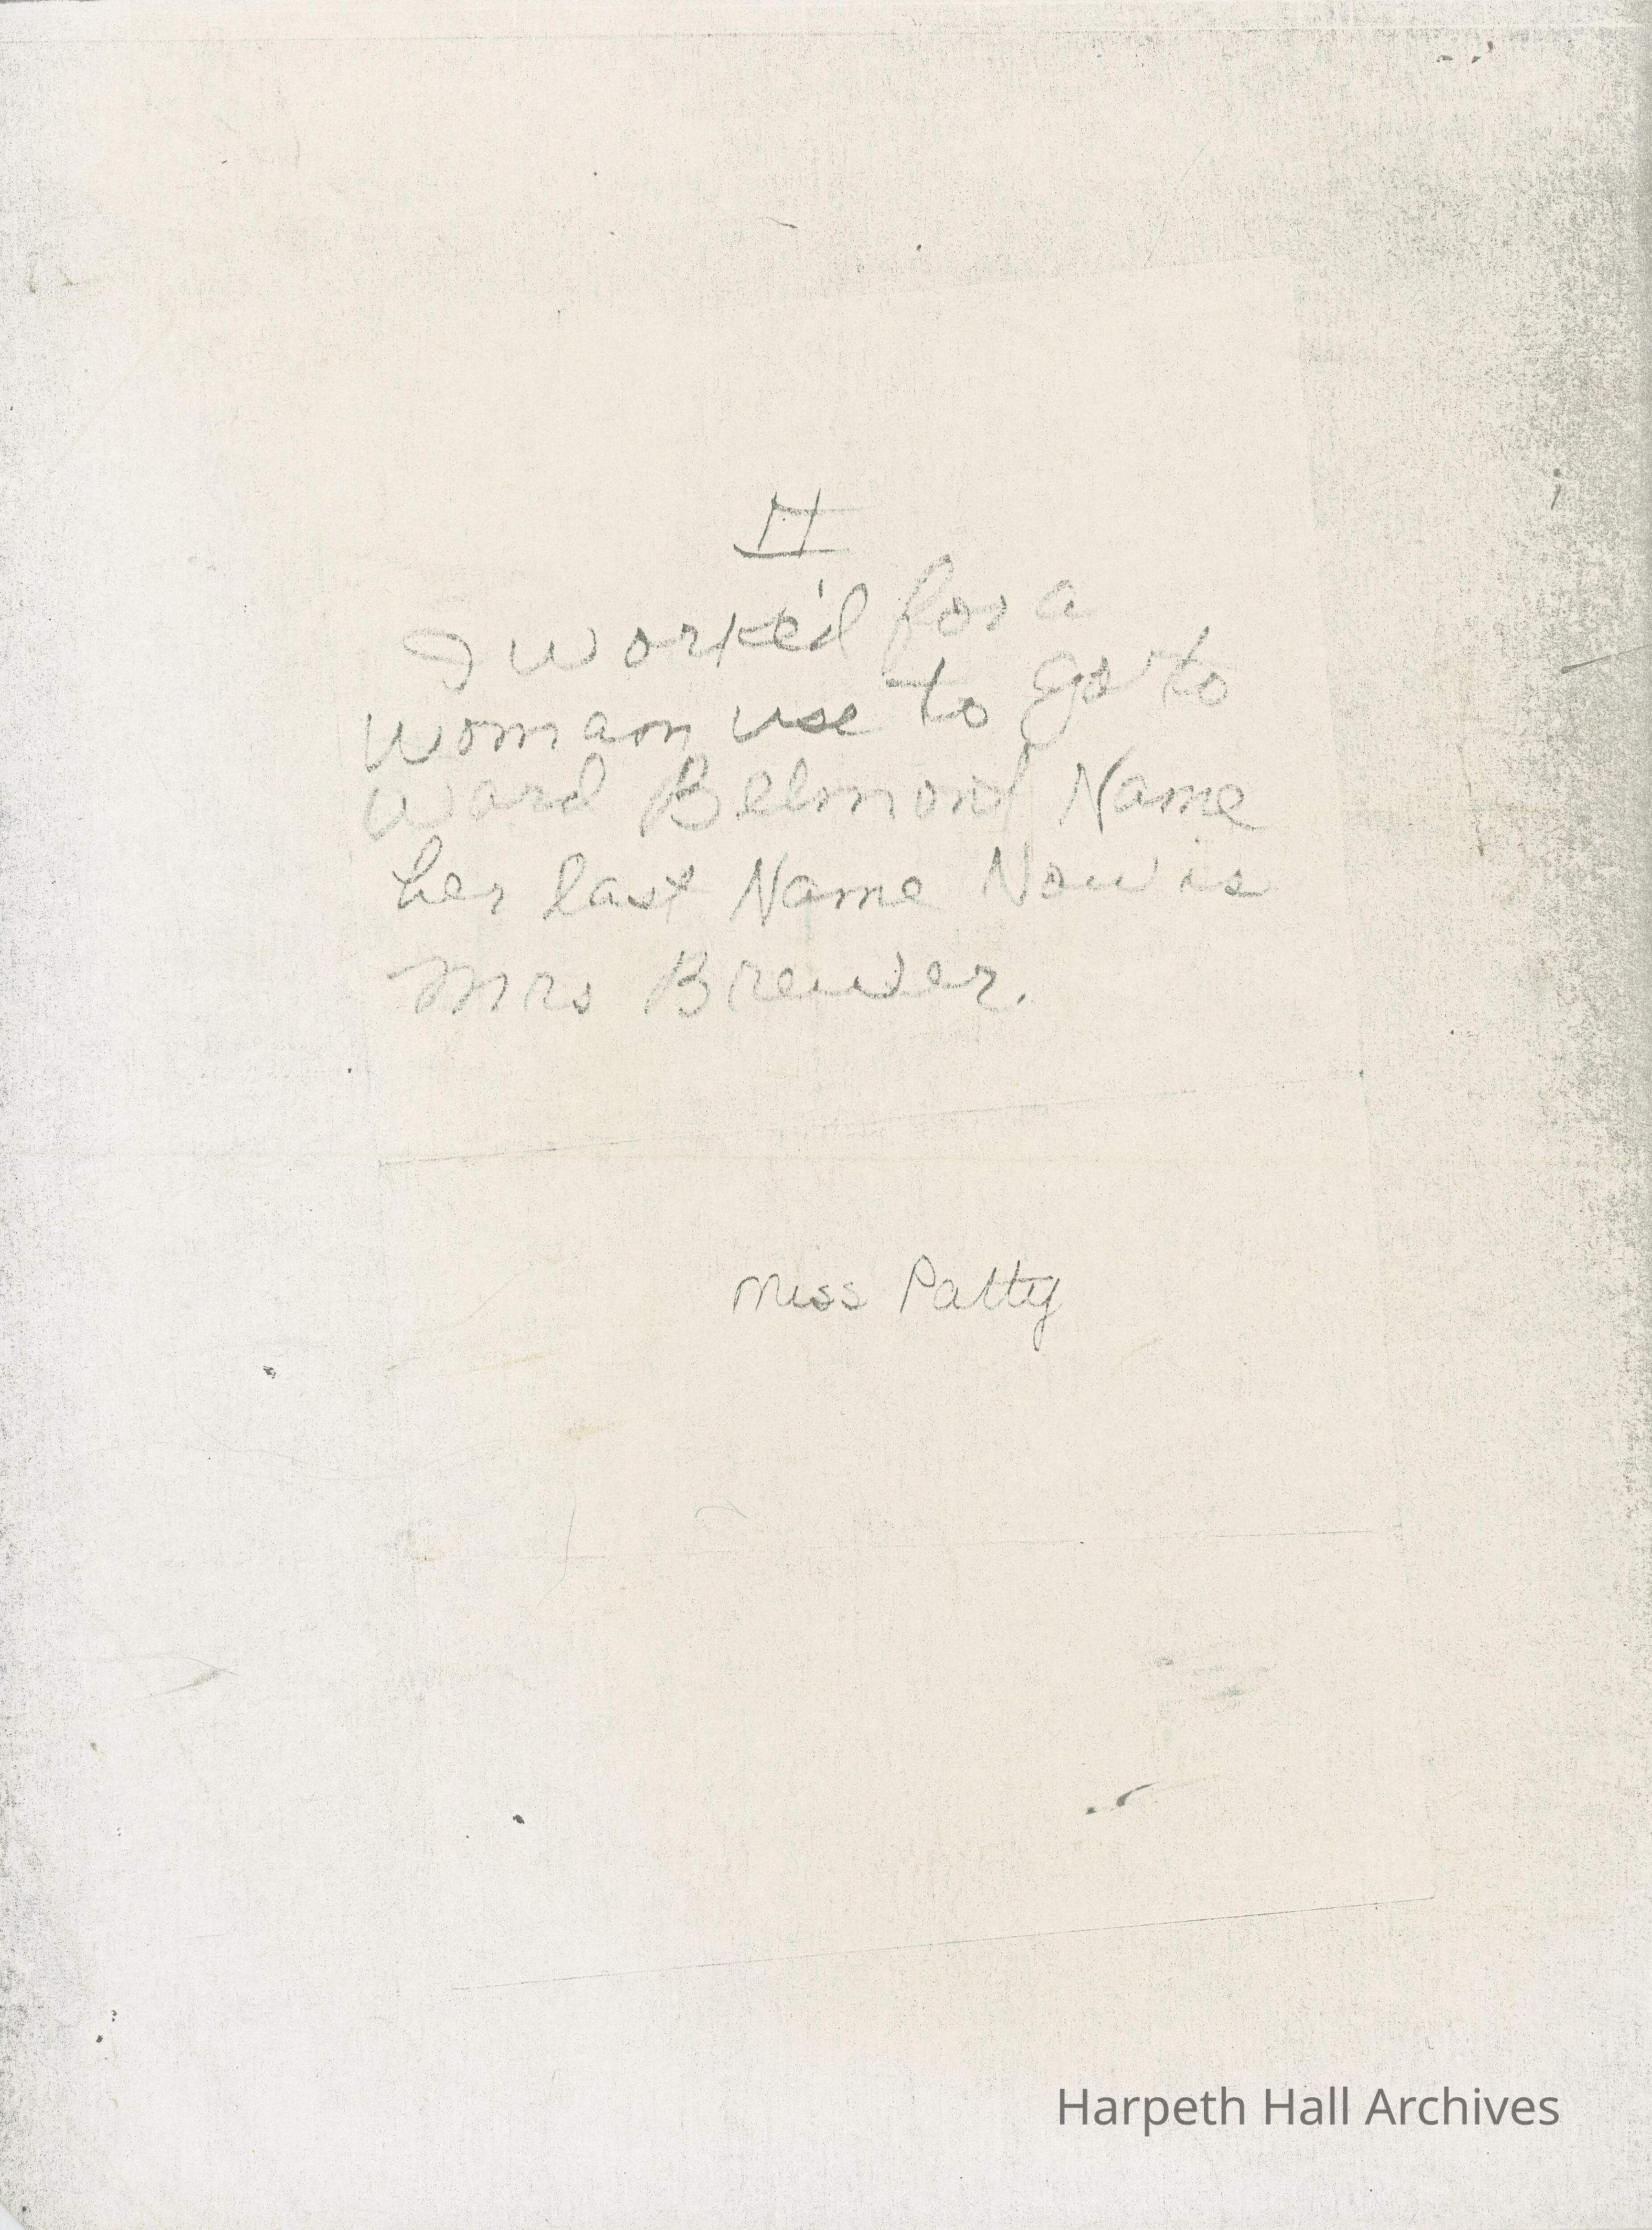 H
I worke'd for a
woman use to go to
Ward Belmont Name
her last Name Now is
Mrs Brewer.
Miss Patty
Harpeth Hall Archives